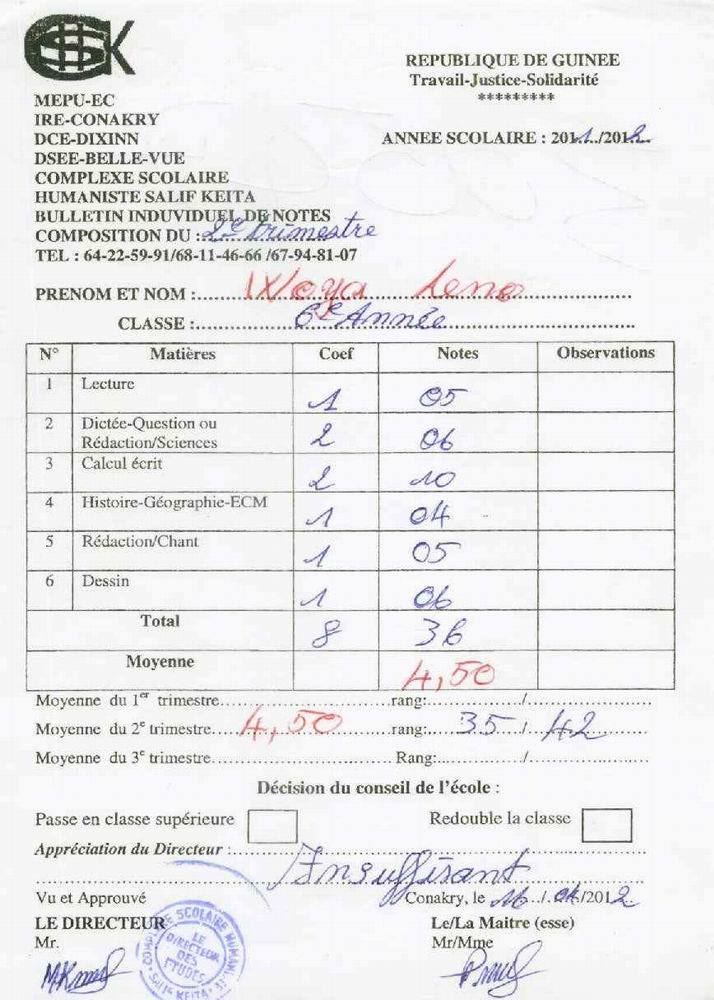 CSHSK
REPUBLIQUE DE GUINEE
Travail-Justice-Solidarité
*********
MEPU-EC
IRE-CONAKRY
DCE-DIXINN
ANNEE SCOLAIRE : 2011../2012..
DSEE-BELLE-VUE
COMPLEXE SCOLAIRE
HUMANISTE SALIF KEITA
BULLETIN INDUVIDUEL DE NOTES
COMPOSITION DU : 2e trimestre
TEL : 64-22-59-91/68-11-46-66 /67-94-81-07
PRENOM ET NOM : Woya Leno
CLASSE : 6e Année
N° Matières Coef Notes Observations
1 Lecture 1 05
2 Dictée-Question ou Rédaction/Sciences 2 06
3 Calcul écrit 2 10
4 Histoire-Géographie-ECM 1 04
5 Rédaction/Chant 1 05
6 Dessin 1 06
Total 8 36
Moyenne 4,50
Moyenne du 1er trimestre rang: /
Moyenne du 2e trimestre 4,50 rang: 35 / 42
Moyenne du 3e trimestre Rang: /
Décision du conseil de l'école :
Passe en classe supérieure Redouble la classe
Appréciation du Directeur :
Insuffisant
Vu et Approuvé Conakry, le 16 / 04/2012
LE DIRECTEUR Le/La Maitre (esse)
Mr. Mr/Mme
LE DIRECTEUR DES ETUDES